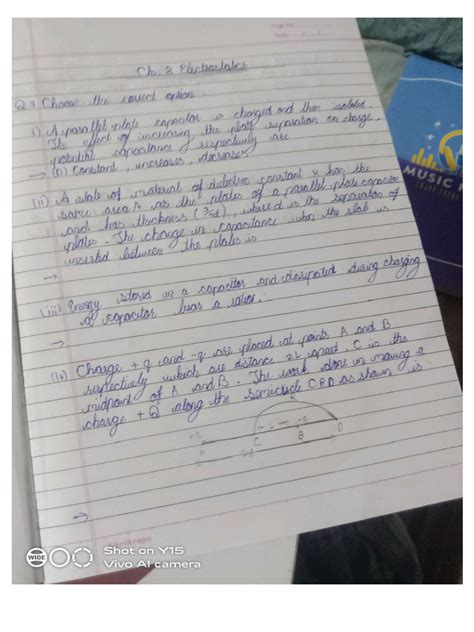 Ch. 8 Electrostatics
Q.1 Choose the correct option.
i) A parallel plate capacitor is charged and then isolated.
The effect of increasing the plate separation on charge,
potential, capacitance respectively are
→ (A) Constant, increases, decreases
(ii) A slab of material of dielectric constant k has the
same area A as the plates of a parallel plate capacitor
and has thickness (3/4d), where d is the separation of
plates. The change in capacitance when the slab is
inserted between the plates is
→
(iii) Energy stored in a capacitor and dissipated during charging
a capacitor bear a ratio.
→
(iv) Charge +q and -q are placed at points A and B
respectively which are distance 2L apart. C is the
midpoint of A and B. The work done in moving a
charge +Q along the semicircle CRD as shown is
+q
-q
A
C
B
D
→
Shrikrupa
WIDE
Shot on Y15
Vivo AI camera
MUSIC